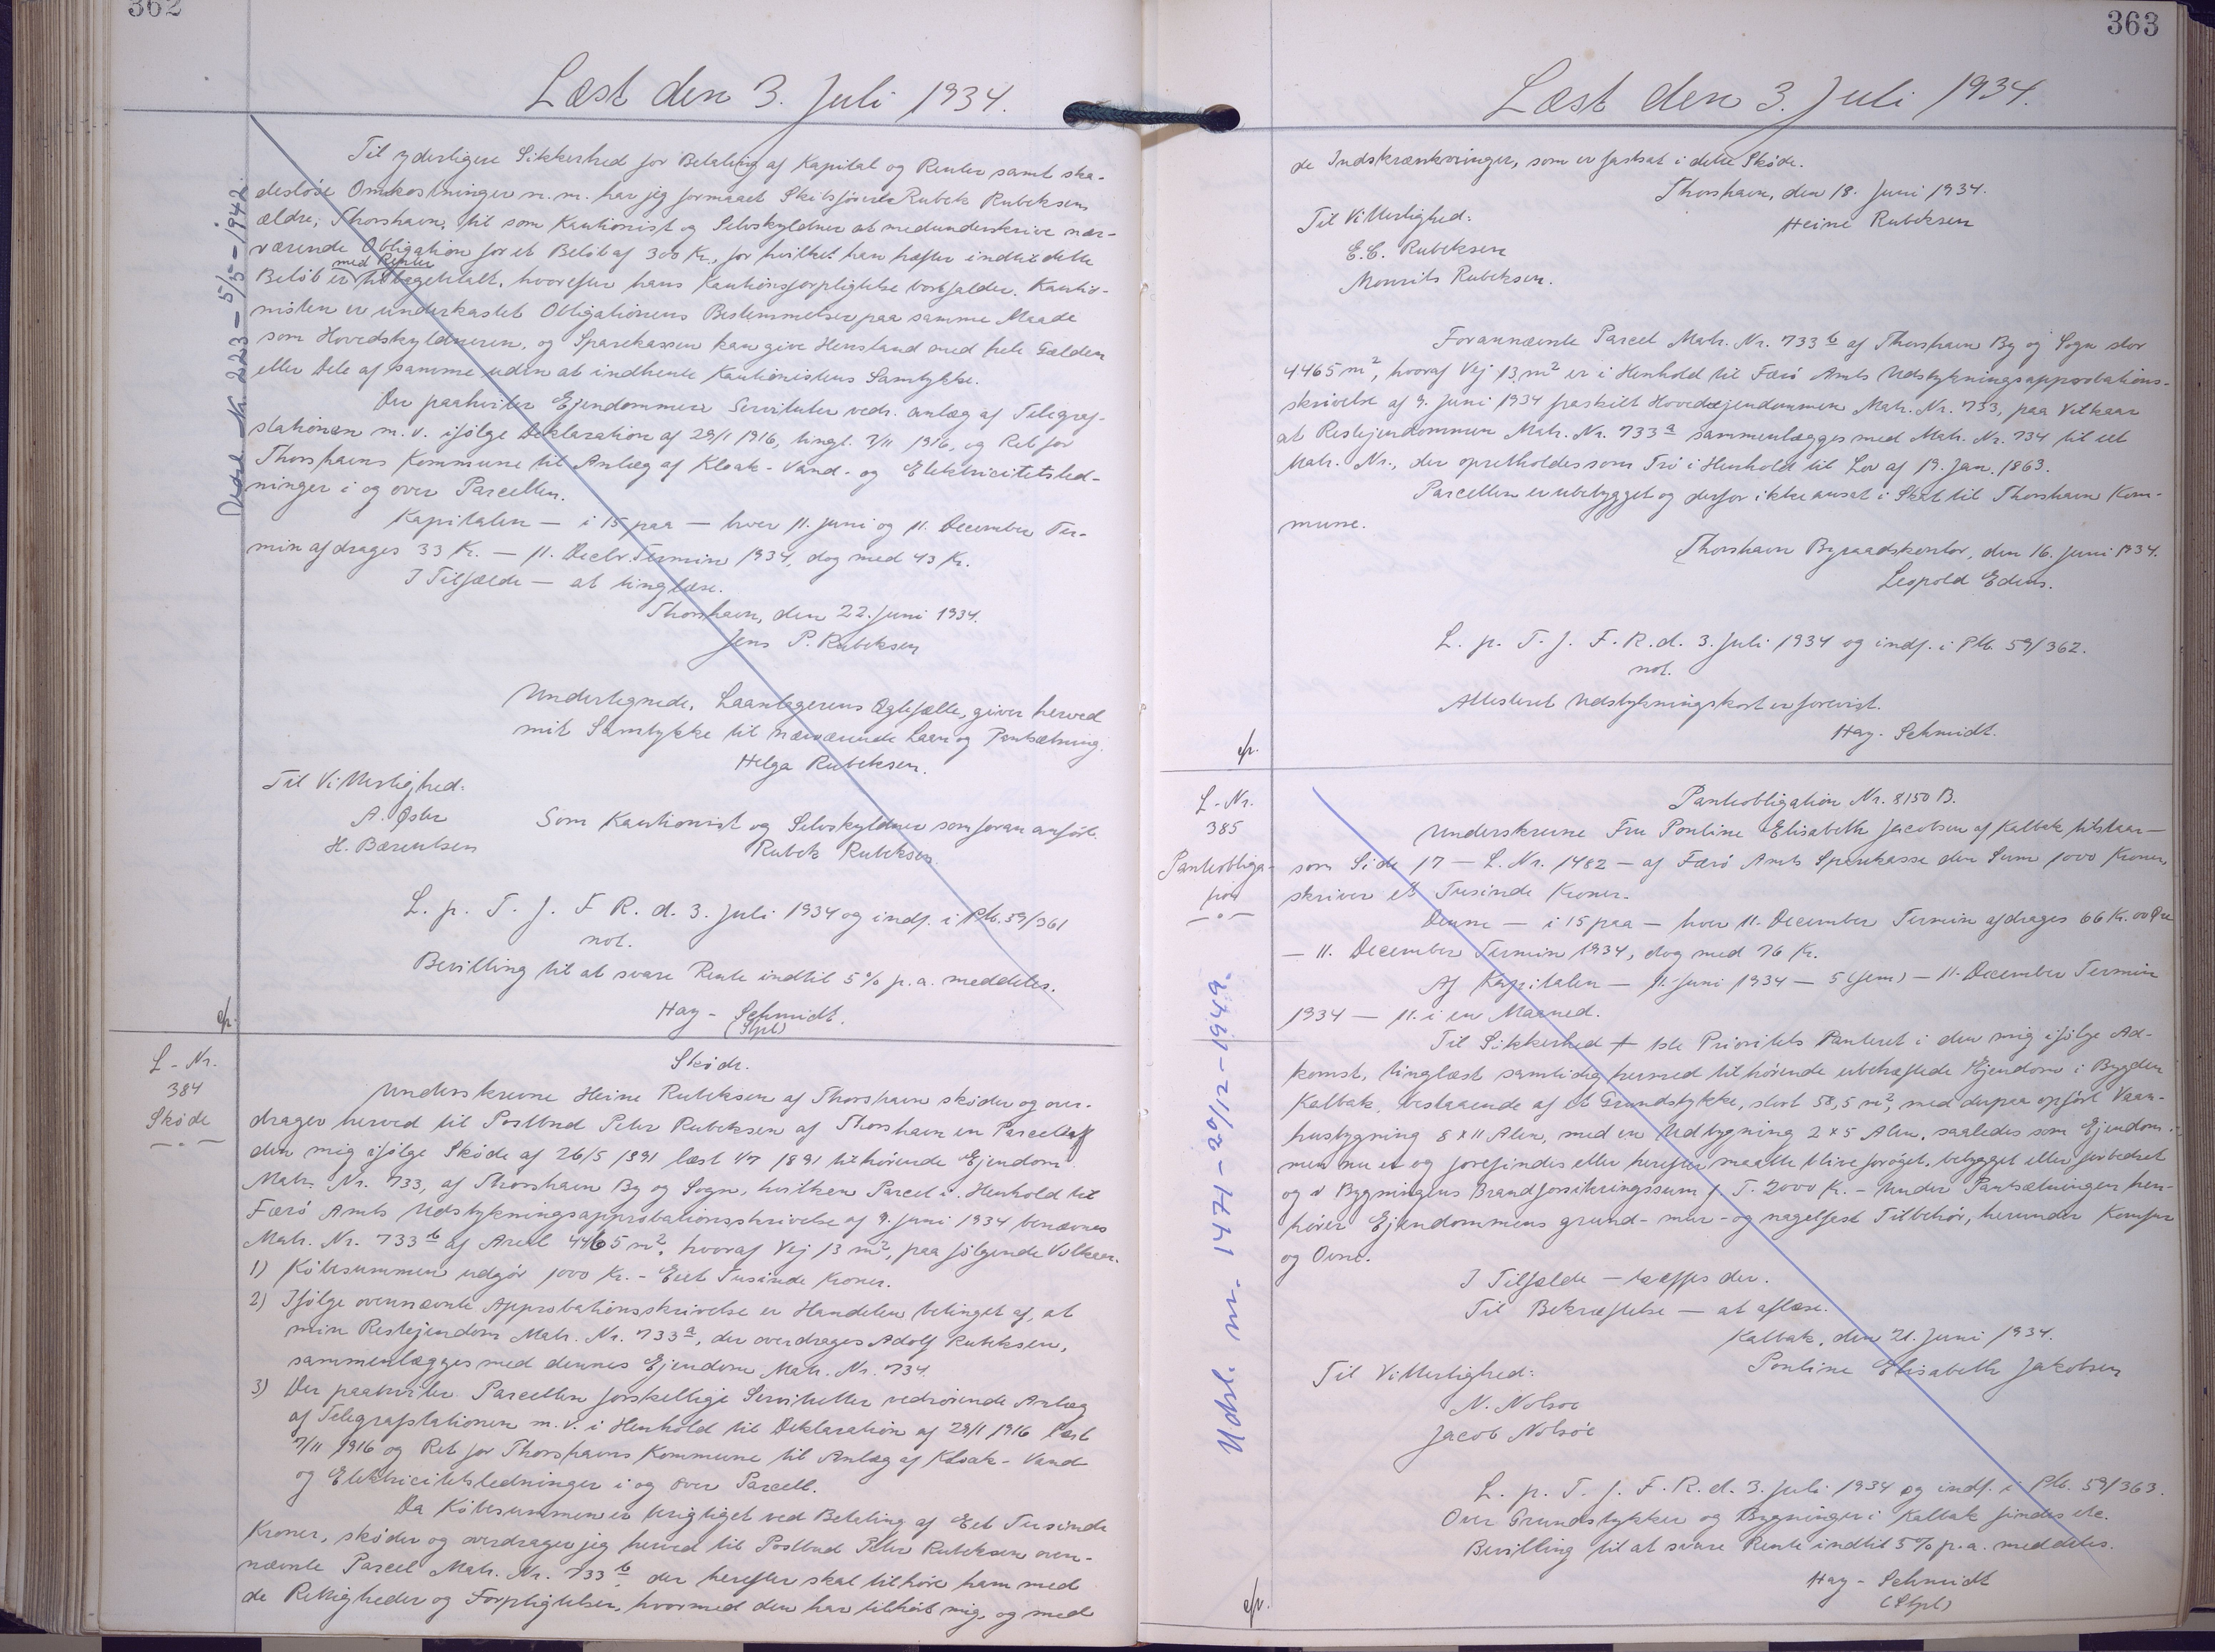 362
Læst den 3. Juli 1934.
Udsl. Nr. 223 - 5/5 - 1942.
Til yderligere Sikkerhed for Betaling af Kapital og Renter samt ska-
desløse Omkostninger m.m. har jeg formaaet Skibsfører Rubek Rubeksen
ældre, Thorshavn, til som Kautionist og Selvskyldner at medunderskrive nær-
værende Obligation for et Beløb af 300 Kr., for hvilket han hæfter indtil dette
med Renter
Beløb er tilbagebetalt, hvorefter hans Kautionsforpligtelse bortfalder. Kautio-
nisten er underkastet Obligationens Bestemmelser paa samme Maade
som Hovedskyldneren, og Sparekassen kan give Henstand med hele Gælden
eller Dele af samme uden at indhente Kautionistens Samtykke.
Der paahviler Ejendommen Servituter vedr. anlæg af Telegraf-
stationen m.v. ifølge Deklaration af 29/1 1916, tingl. 7/11 1916, og Ret for
Thorshavns Kommune til Anlæg af Kloak- Vand- og Elektricitetsled-
ninger i og over Parcellen.
Kapitalen — i 15 paa — hver 11. Juni og 11. December Ter-
min afdrages 33 Kr. — 11. Decbr. Termin 1934, dog med 43 Kr.
I Tilfælde — at tinglæse.
Thorshavn, den 22. Juni 1934.
Jens P. Rubeksen
Undertegnede, Laantagerens Ægtefælle, giver herved
mit Samtykke til nærværende Laan og Pantsætning.
Helga Rubeksen.
Til Vitterlighed:
A. Øster
H. Bærentsen
Som Kautionist og Selvskyldner som foran anført.
Rubek Rubeksen.
L. p. T. f. F. R. d. 3. Juli 1934 og indf. i Ptb. 59/361
not.
Bevilling til at svare Rente indtil 5% p.a. meddeles.
Hay - Schmidt.
(Stpl)
cfr.
L - Nr.
384
Skøde
Skøde.
Underskrevne Heine Rubeksen af Thorshavn skøder og over-
drager herved til Postbud Peter Rubeksen af Thorshavn en Parcel af
den mig ifølge Skøde af 26/5 1891 læst 1/7 1891 tilhørende Ejendom
Matr. Nr. 733, af Thorshavn By og Sogn, hvilken Parcel i Henhold til
Færø Amts Udstykningsapprobationsskrivelse af 9. Juni 1934 benævnes
Matr. Nr. 733 b af Areal 4465 m², hvoraf Vej 13 m², paa følgende Vilkaar.
1) Købesummen udgør 1000 Kr. - Eet Tusinde Kroner.
2) Ifølge ovennævnte Approbationsskrivelse er Handelen betinget af, at
min Restejendom Matr. Nr. 733 a, der overdrages Adolf Rubeksen,
sammenlægges med dennes Ejendom Matr. Nr. 734.
3) Der paahviler Parcellen forskellige Servitutter vedrørende Anlæg
af Telegrafstationen m.v. i Henhold til Deklaration af 29/1 1916 læst
7/11 1916 og Ret for Thorshavns Kommune til Anlæg af Kloak- Vand
og Elektricitetsledninger i og over Parcell.
Da Købesummen er berigtiget ved Betaling af Eet Tusinde
Kroner, skøder og overdrager jeg herved til Postbud Peter Rubeksen oven-
nævnte Parcel Matr. Nr. 733 b, der herefter skal tilhøre ham med
de Rettigheder og Forpligtelser, hvormed den har tilhørt mig, og med
363
Læst den 3. Juli 1934.
de Indskrænkninger, som er fastsat i dette Skøde.
Thorshavn, den 18. Juni 1934.
Heine Rubeksen
Til Vitterlighed:
E.C. Rubeksen
Mourits Rubeksen.
Forannævnte Parcel Matr. Nr. 733 b af Thorshavn By og Sogn stor
4465 m², hvoraf Vej 13 m² er i Henhold til Færø Amts Udstykningsapprobations-
skrivelse af 9. Juni 1934 fraskilt Hovedejendommen Matr. Nr. 733, paa Vilkaar
at Restejendommen Matr. Nr. 733 a sammenlægges med Matr. Nr. 734 til eet
Matr. Nr., der opretholdes som Trø i Henhold til Lov af 19. Jan. 1863.
Parcellen er ubebygget og derfor ikke ansat i Skat til Thorshavn Kom-
mune.
Thorshavn Byraadskontor, den 16. Juni 1934.
Leopold Edens.
L. p. T. f. F. R. d. 3. Juli 1934 og indf. i Ptb. 59/362.
not.
Attesteret Udstykningskort er forevist.
Hay - Schmidt.
cfr.
L - Nr.
385
Panteobliga-
tion
Udsl. nr. 1471 - 20/12 - 1949.
Panteobligation Nr. 8150 B.
Underskrevne Fru Pouline Elisabeth Jacobsen af Kalbak tilstaar —
som Side 17 — L. Nr. 1482 — af Færø Amts Sparekasse den Sum 1000 Kroner
skriver et Tusinde Kroner.
Denne — i 15 paa — hver 11. December Termin afdrages 66 Kr. 00 Øre
— 11. December Termin 1934, dog med 76 Kr.
Af Kapitalen — 11. Juni 1934 — 5 (fem) — 11. December Termin
1934 — 11. i en Maaned.
Til Sikkerhed + 1ste Prioritets Panteret i den mig ifølge Ad-
komst, tinglæst samtidig hermed tilhørende ubehæftede Ejendom i Bygden
Kalbak, bestaaende af et Grundstykke, stort 58,5 m², med derpaa opført Vaan-
husbygning 8 x 11 Alen, med en Udbygning 2 x 5 Alen, saaledes som Ejendom-
men nu er og forefindes eller herefter maatte blive forøget, bebygget eller forbedret
og i Bygningens Brandforsikringssum f. T. 2000 Kr. - Under Pantsætningen hen-
hører Ejendommens grund- mur- og nagelfast Tilbehør, herunder Komfur
og Ovne.
I Tilfælde — træffes der.
Til Bekræftelse — at aflæse.
Kalbak, den 21. Juni 1934.
Pouline Elisabeth Jakobsen
Til Vitterlighed:
N. Nolsøe
Jacob Nolsøe
L. p. T. f. F. R. d. 3. Juli 1934 og indf. i Ptb. 59/363.
Over Grundstykker og Bygninger i Kalbak findes etc.
Bevilling til at svare Rente indtil 5% p.a. meddeles.
Hay - Schmidt
(Stpl)
cfr.